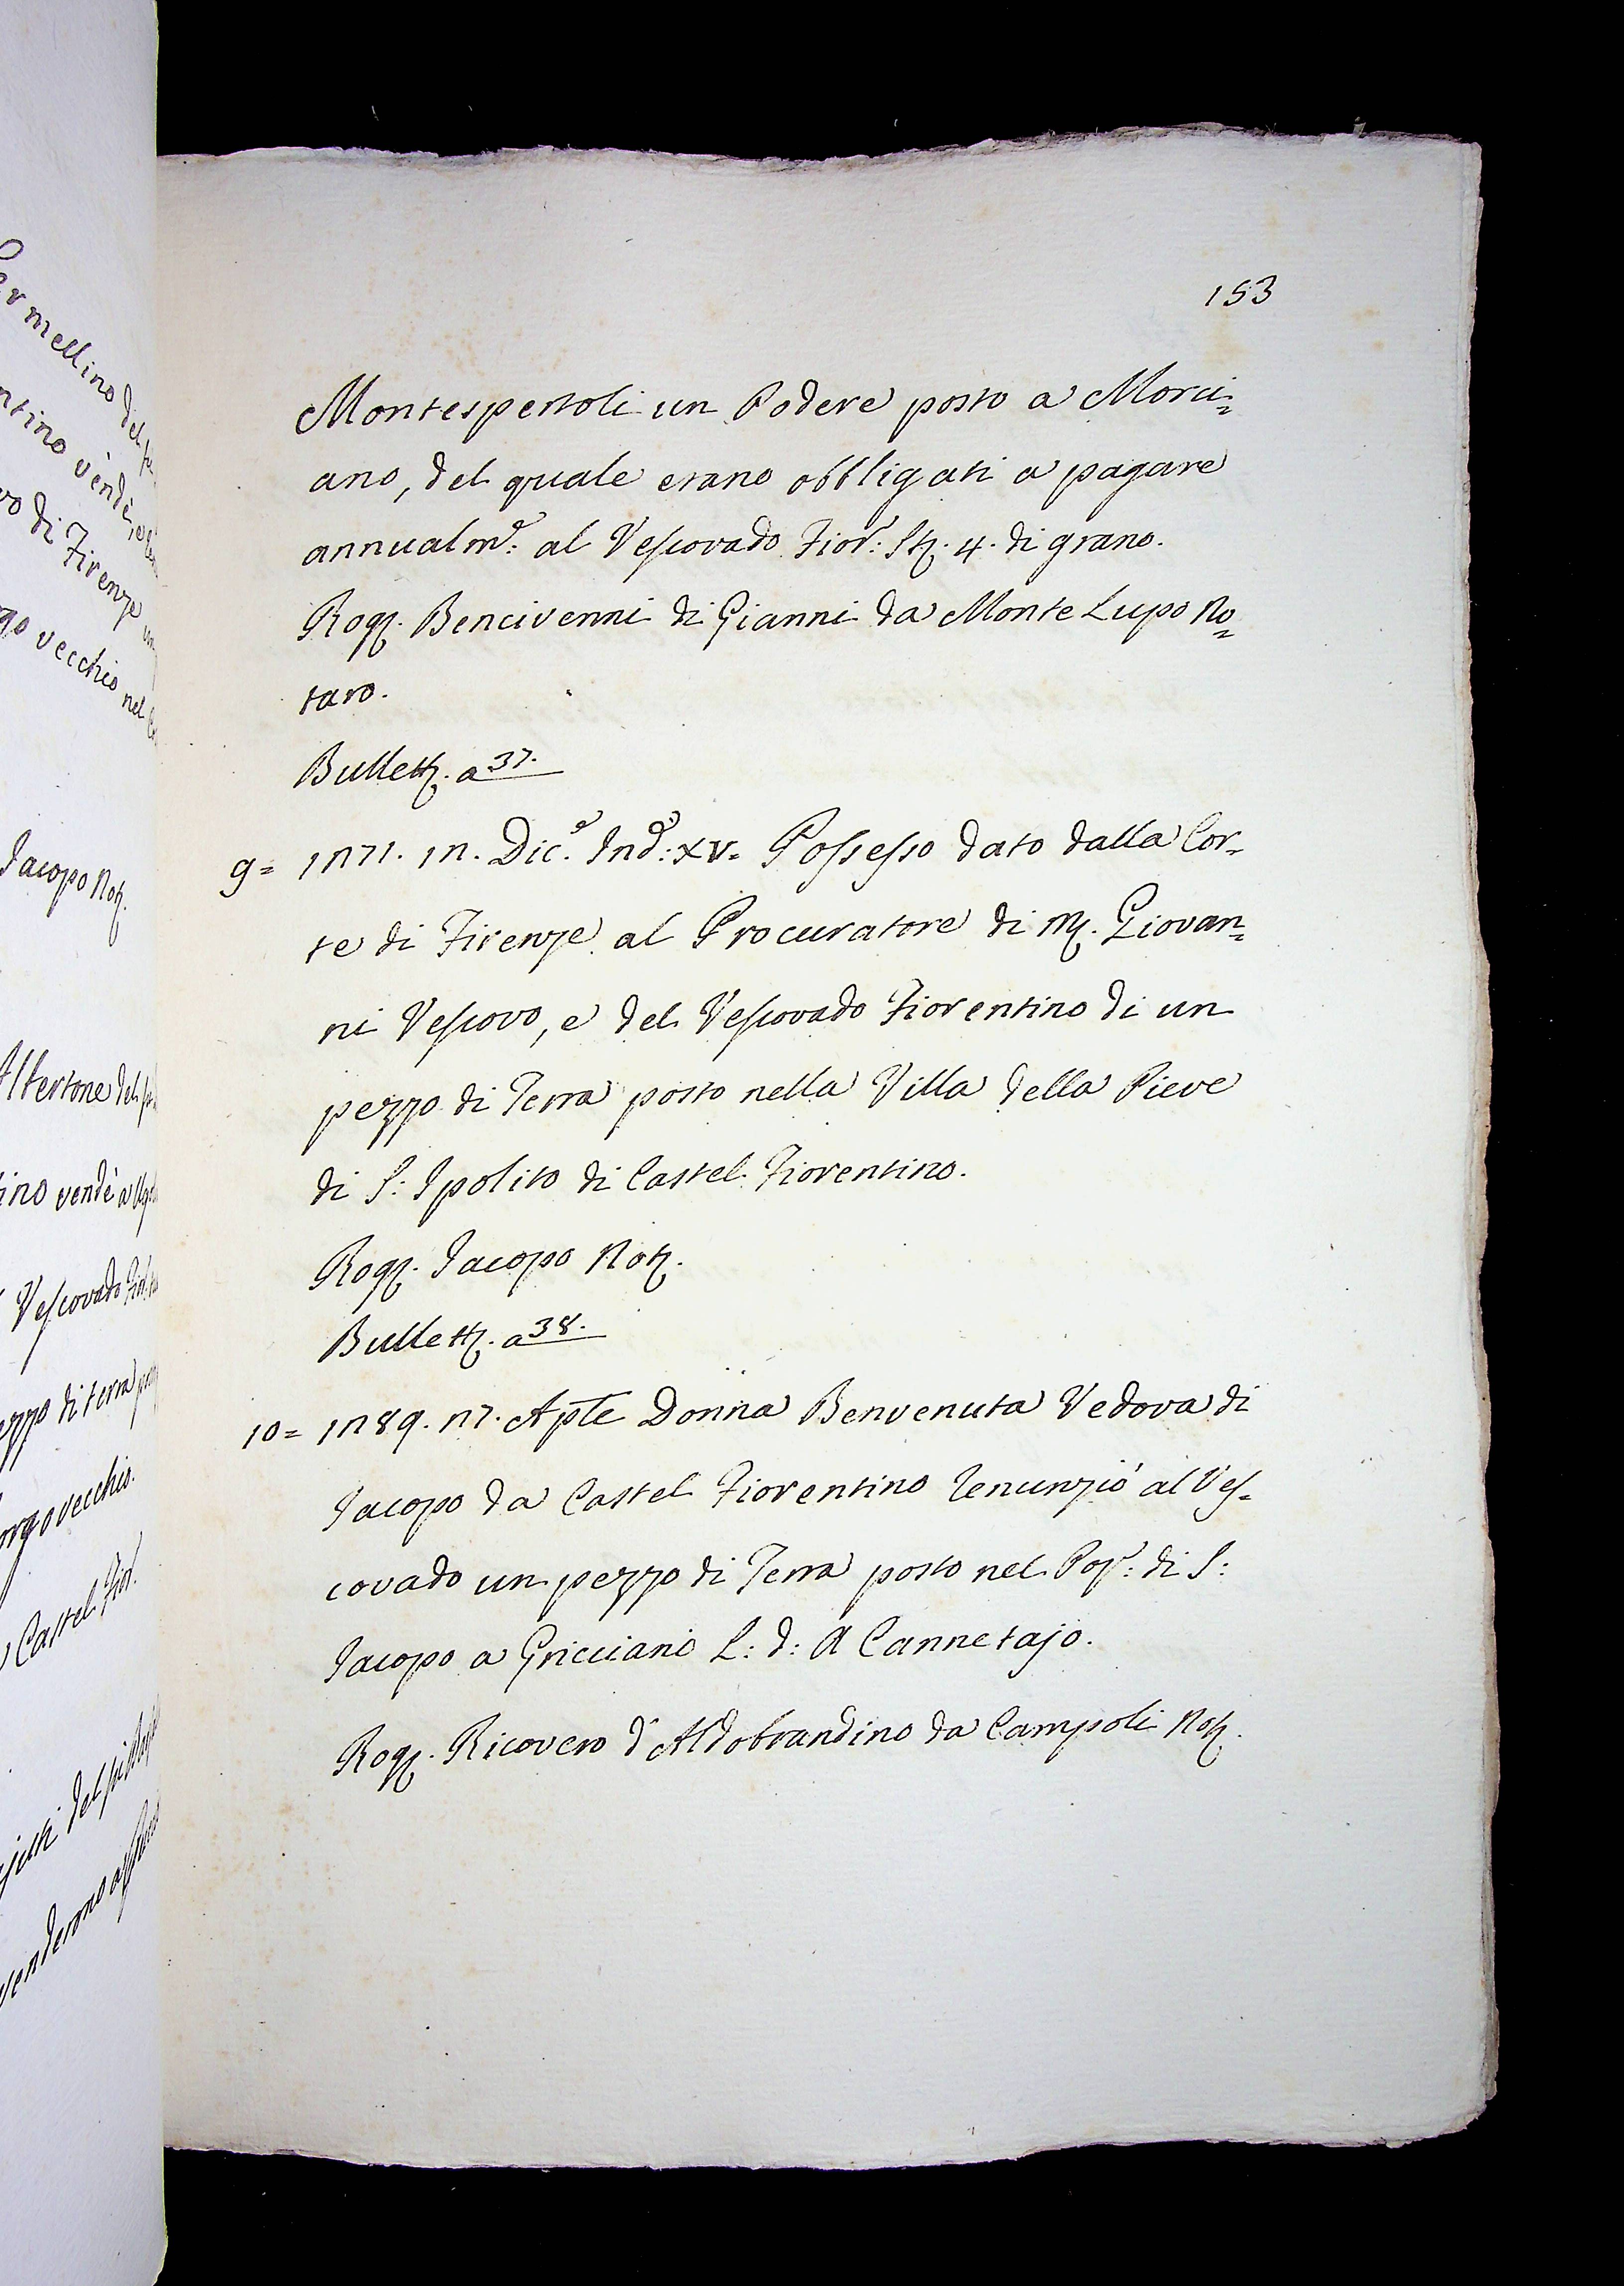 153
Montespertoli un Podere posto a Morci=
ano, del quale erano obbligati a pagare
annualm.e: al Vescovado Fior.o: St. 4. di grano.
Rog. Bencivenni di Gianni da Monte Lupo No=
taro.
Bullett. a 37.
9= 1271. 12. Dic.e Ind.e: XV= Possesso dato dalla Cor=
te di Firenze al Procuratore di M. Giovan=
ni Vescovo, e del Vescovado Fiorentino di un
pezzo di Terra posto nella Villa della Pieve
di S: Ipolito di Castel Fiorentino.
Rog. Jacopo Not.
Bullett. a 38.
10= 1289. 27. Aple Donna Benvenuta Vedova di
Jacopo da Castel Fiorentino renunziò al Ves=
covado un pezzo di Terra posto nel Pop.o: di S:
Jacopo a Gricciano L: d: A Cannetajo.
Rog. Ricovero d'Aldobrandino da Campoli Not.
ermellino del
ntino vendè,
vo di Firenze un
go vecchio nel
Jacopo Not.
Albertone del
ino vendè a
Vescovado Fior.
ezzo di terra
orgo vecchio.
Castel Fior.
venderono